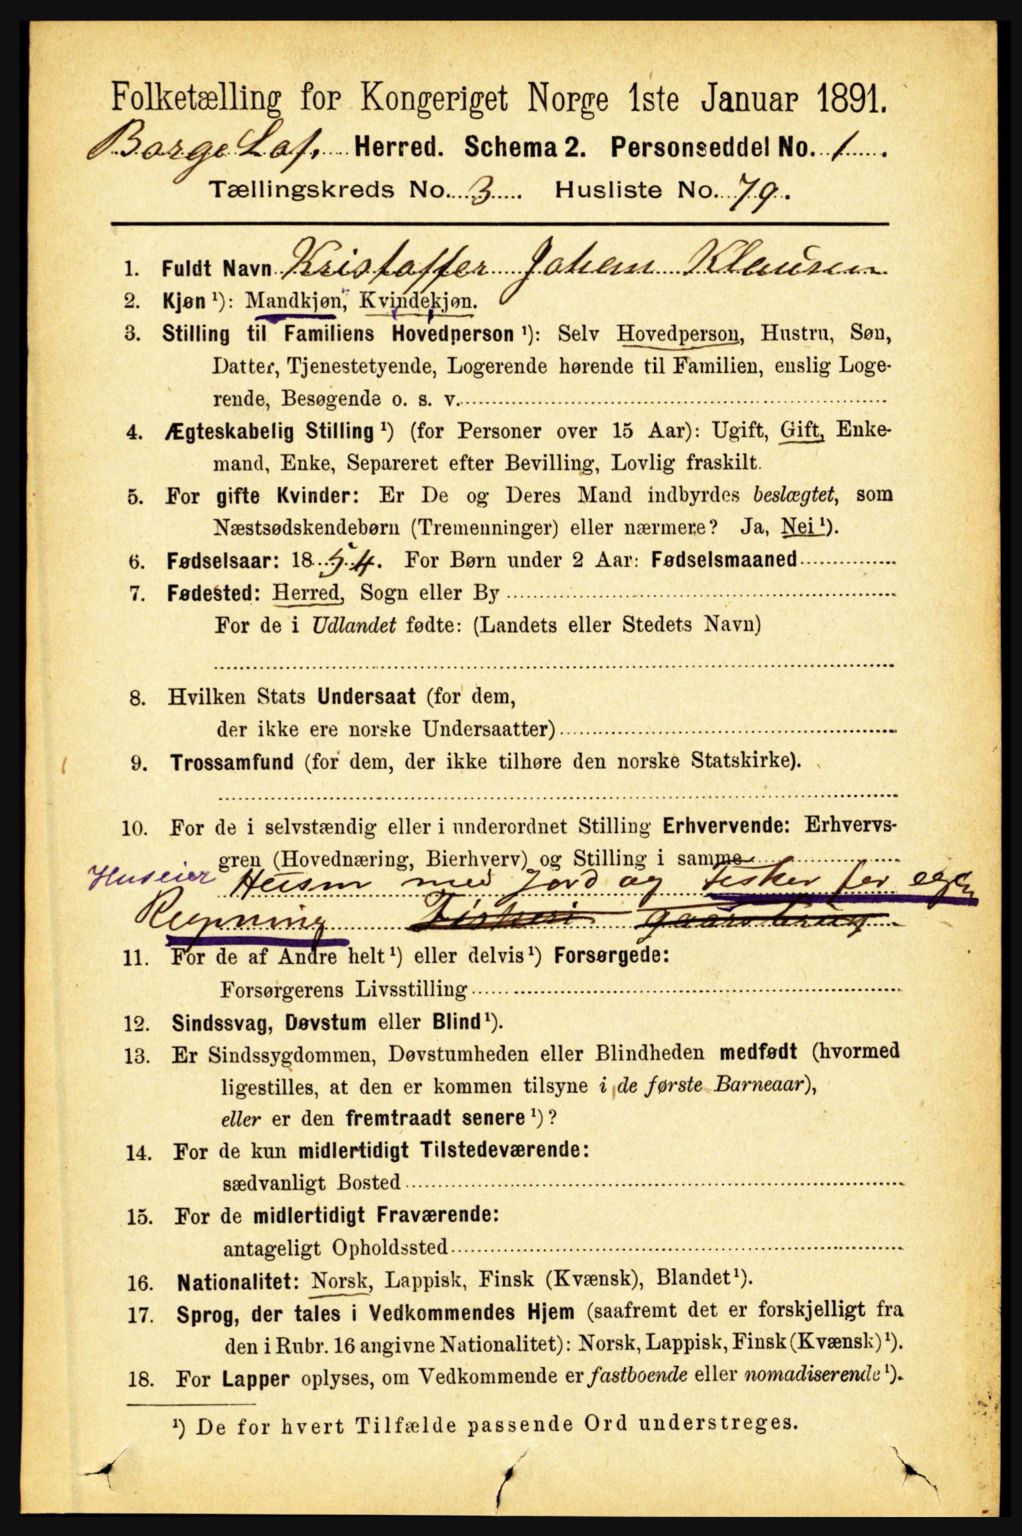 Folketælling for Kongeriget Norge 1ste Januar 1891.
Borge Lof. Herred. Schema 2. Personseddel No. 1.
Tællingskreds No. 3. Husliste No. 79.
1. Fuldt Navn Kristoffer Johan Klausen
2. Kjøn ¹): Mandkjøn, Kvindekjøn.
3. Stilling til Familiens Hovedperson ¹): Selv Hovedperson, Hustru, Søn,
Datter, Tjenestetyende, Logerende hørende til Familien, enslig Loge-
rende, Besøgende o. s. v.
4. Ægteskabelig Stilling ¹) (for Personer over 15 Aar): Ugift, Gift, Enke-
mand, Enke, Separeret efter Bevilling, Lovlig fraskilt.
5. For gifte Kvinder: Er De og Deres Mand indbyrdes beslægtet, som
Næstsødskendebørn (Tremenninger) eller nærmere? Ja, Nei ¹).
6. Fødselsaar: 1854. For Børn under 2 Aar: Fødselsmaaned
7. Fødested: Herred, Sogn eller By
For de i Udlandet fødte: (Landets eller Stedets Navn)
8. Hvilken Stats Undersaat (for dem,
der ikke ere norske Undersaatter)
9. Trossamfund (for dem, der ikke tilhøre den norske Statskirke).
10. For de i selvstændig eller i underordnet Stilling Erhvervende: Erhvervs-
gren (Hovednæring, Bierhverv) og Stilling i samme
Huseier Husm med Jord og Fisker for egen
Regning Fiskeri gaardsbrug
11. For de af Andre helt ¹) eller delvis ¹) Forsørgede:
Forsørgerens Livsstilling
12. Sindssvag, Døvstum eller Blind ¹).
13. Er Sindssygdommen, Døvstumheden eller Blindheden medfødt (hvormed
ligestilles, at den er kommen tilsyne i de første Barneaar),
eller er den fremtraadt senere ¹)?
14. For de kun midlertidigt Tilstedeværende:
sædvanligt Bosted
15. For de midlertidigt Fraværende:
antageligt Opholdssted
16. Nationalitet: Norsk, Lappisk, Finsk (Kvænsk), Blandet ¹).
17. Sprog, der tales i Vedkommendes Hjem (saafremt det er forskjelligt fra
den i Rubr. 16 angivne Nationalitet): Norsk, Lappisk, Finsk (Kvænsk) ¹).
18. For Lapper oplyses, om Vedkommende er fastboende eller nomadiserende ¹).
¹) De for hvert Tilfælde passende Ord understreges.